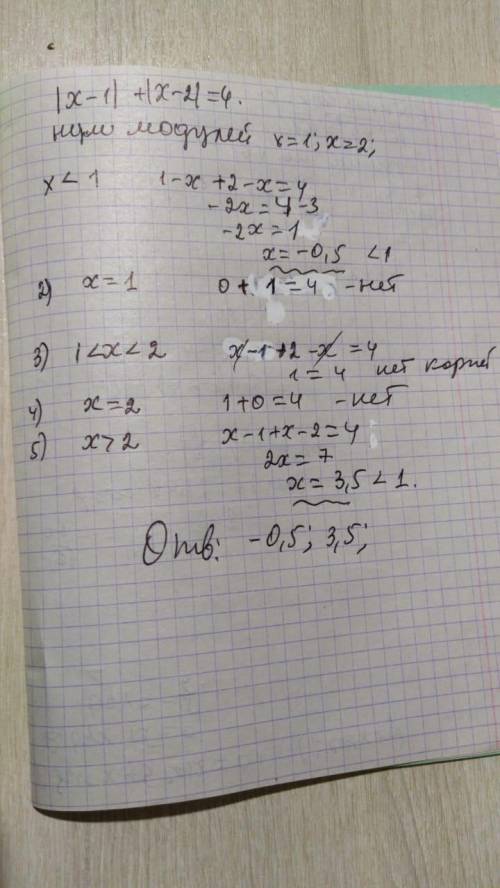 |x-1| +|x-2|=4.
нули модулей x=1; x=2;
x < 1 1-x+2-x=4
-2x=4-3
-2x=1
x=-0,5 <1
2) x=1 0+1=4 -нет
3) 1<x<2 x-1+2-x=4
1=4 нет корней
4) x=2 1+0=4 -нет
5) x>2 x-1+x-2=4
2x=7
x=3,5<1.
Отв: -0,5; 3,5;